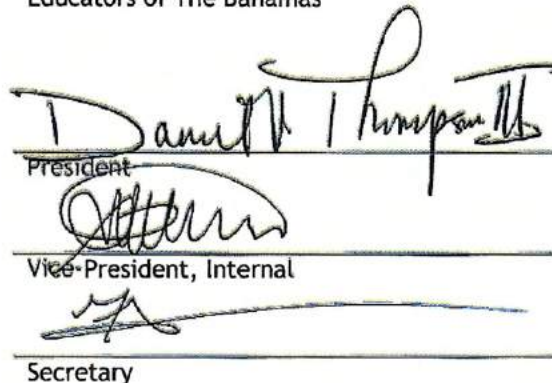 Educators of The Bahamas
Thompson III
President
Vice-President, Internal
Secretary